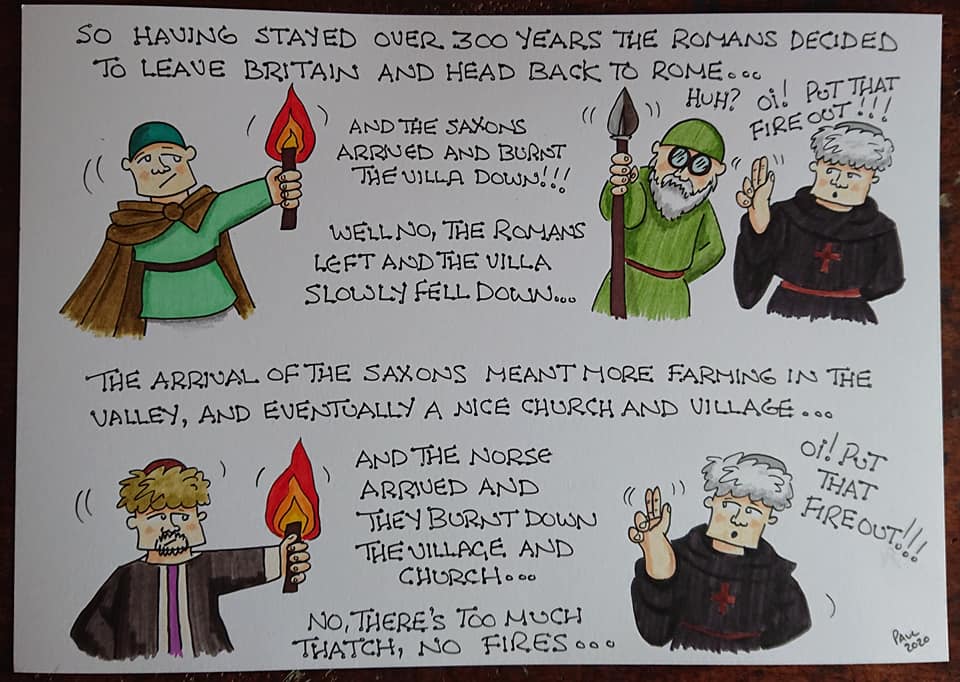 SO HAVING STAYED OVER 300 YEARS THE ROMANS DECIDED
TO LEAVE BRITAIN AND HEAD BACK TO ROME...
AND THE SAXONS
ARRIVED AND BURNT
THE VILLA DOWN!!!
HUH?
OI! PUT THAT
FIRE OUT!!!
WELL NO, THE ROMANS
LEFT AND THE VILLA
SLOWLY FELL DOWN...
THE ARRIVAL OF THE SAXONS MEANT MORE FARMING IN THE
VALLEY, AND EVENTUALLY A NICE CHURCH AND VILLAGE...
AND THE NORSE
ARRIVED AND
THEY BURNT DOWN
THE VILLAGE AND
CHURCH...
OI! PUT
THAT
FIRE OUT!!!
NO, THERE'S TOO MUCH
THATCH, NO FIRES...
PAUL
2020